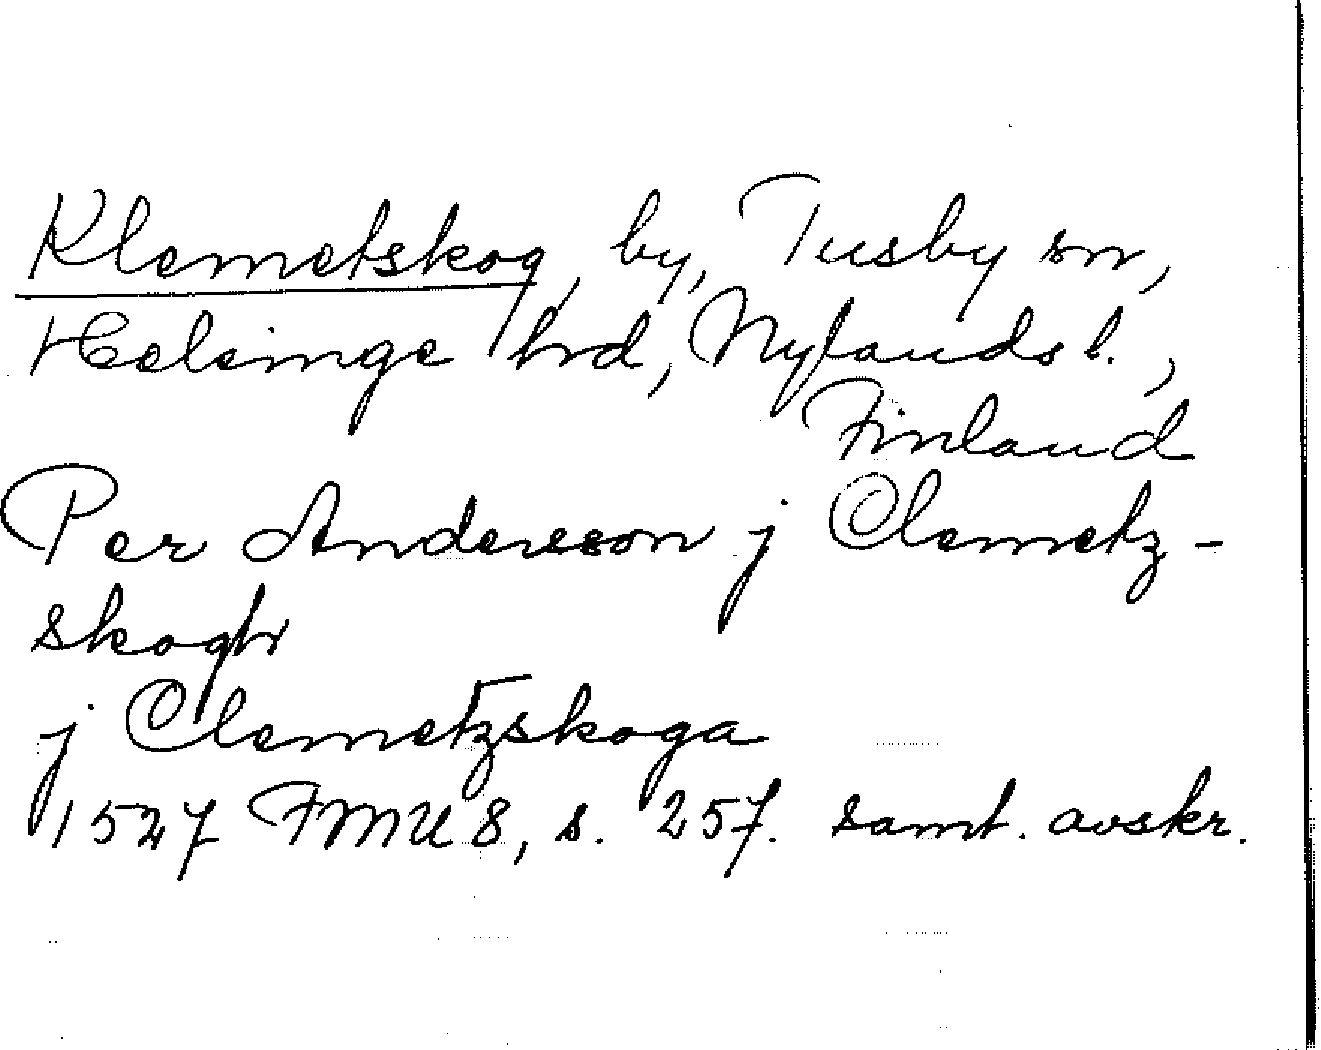 Klemetskog, by, Tusby sn,
Helsinge hrd, Nylands l.,
Finland
Per Andersson j Clemetz-
skogh
j Clemetzskoga
1527 FMU 8, s. 257. samt. avskr.